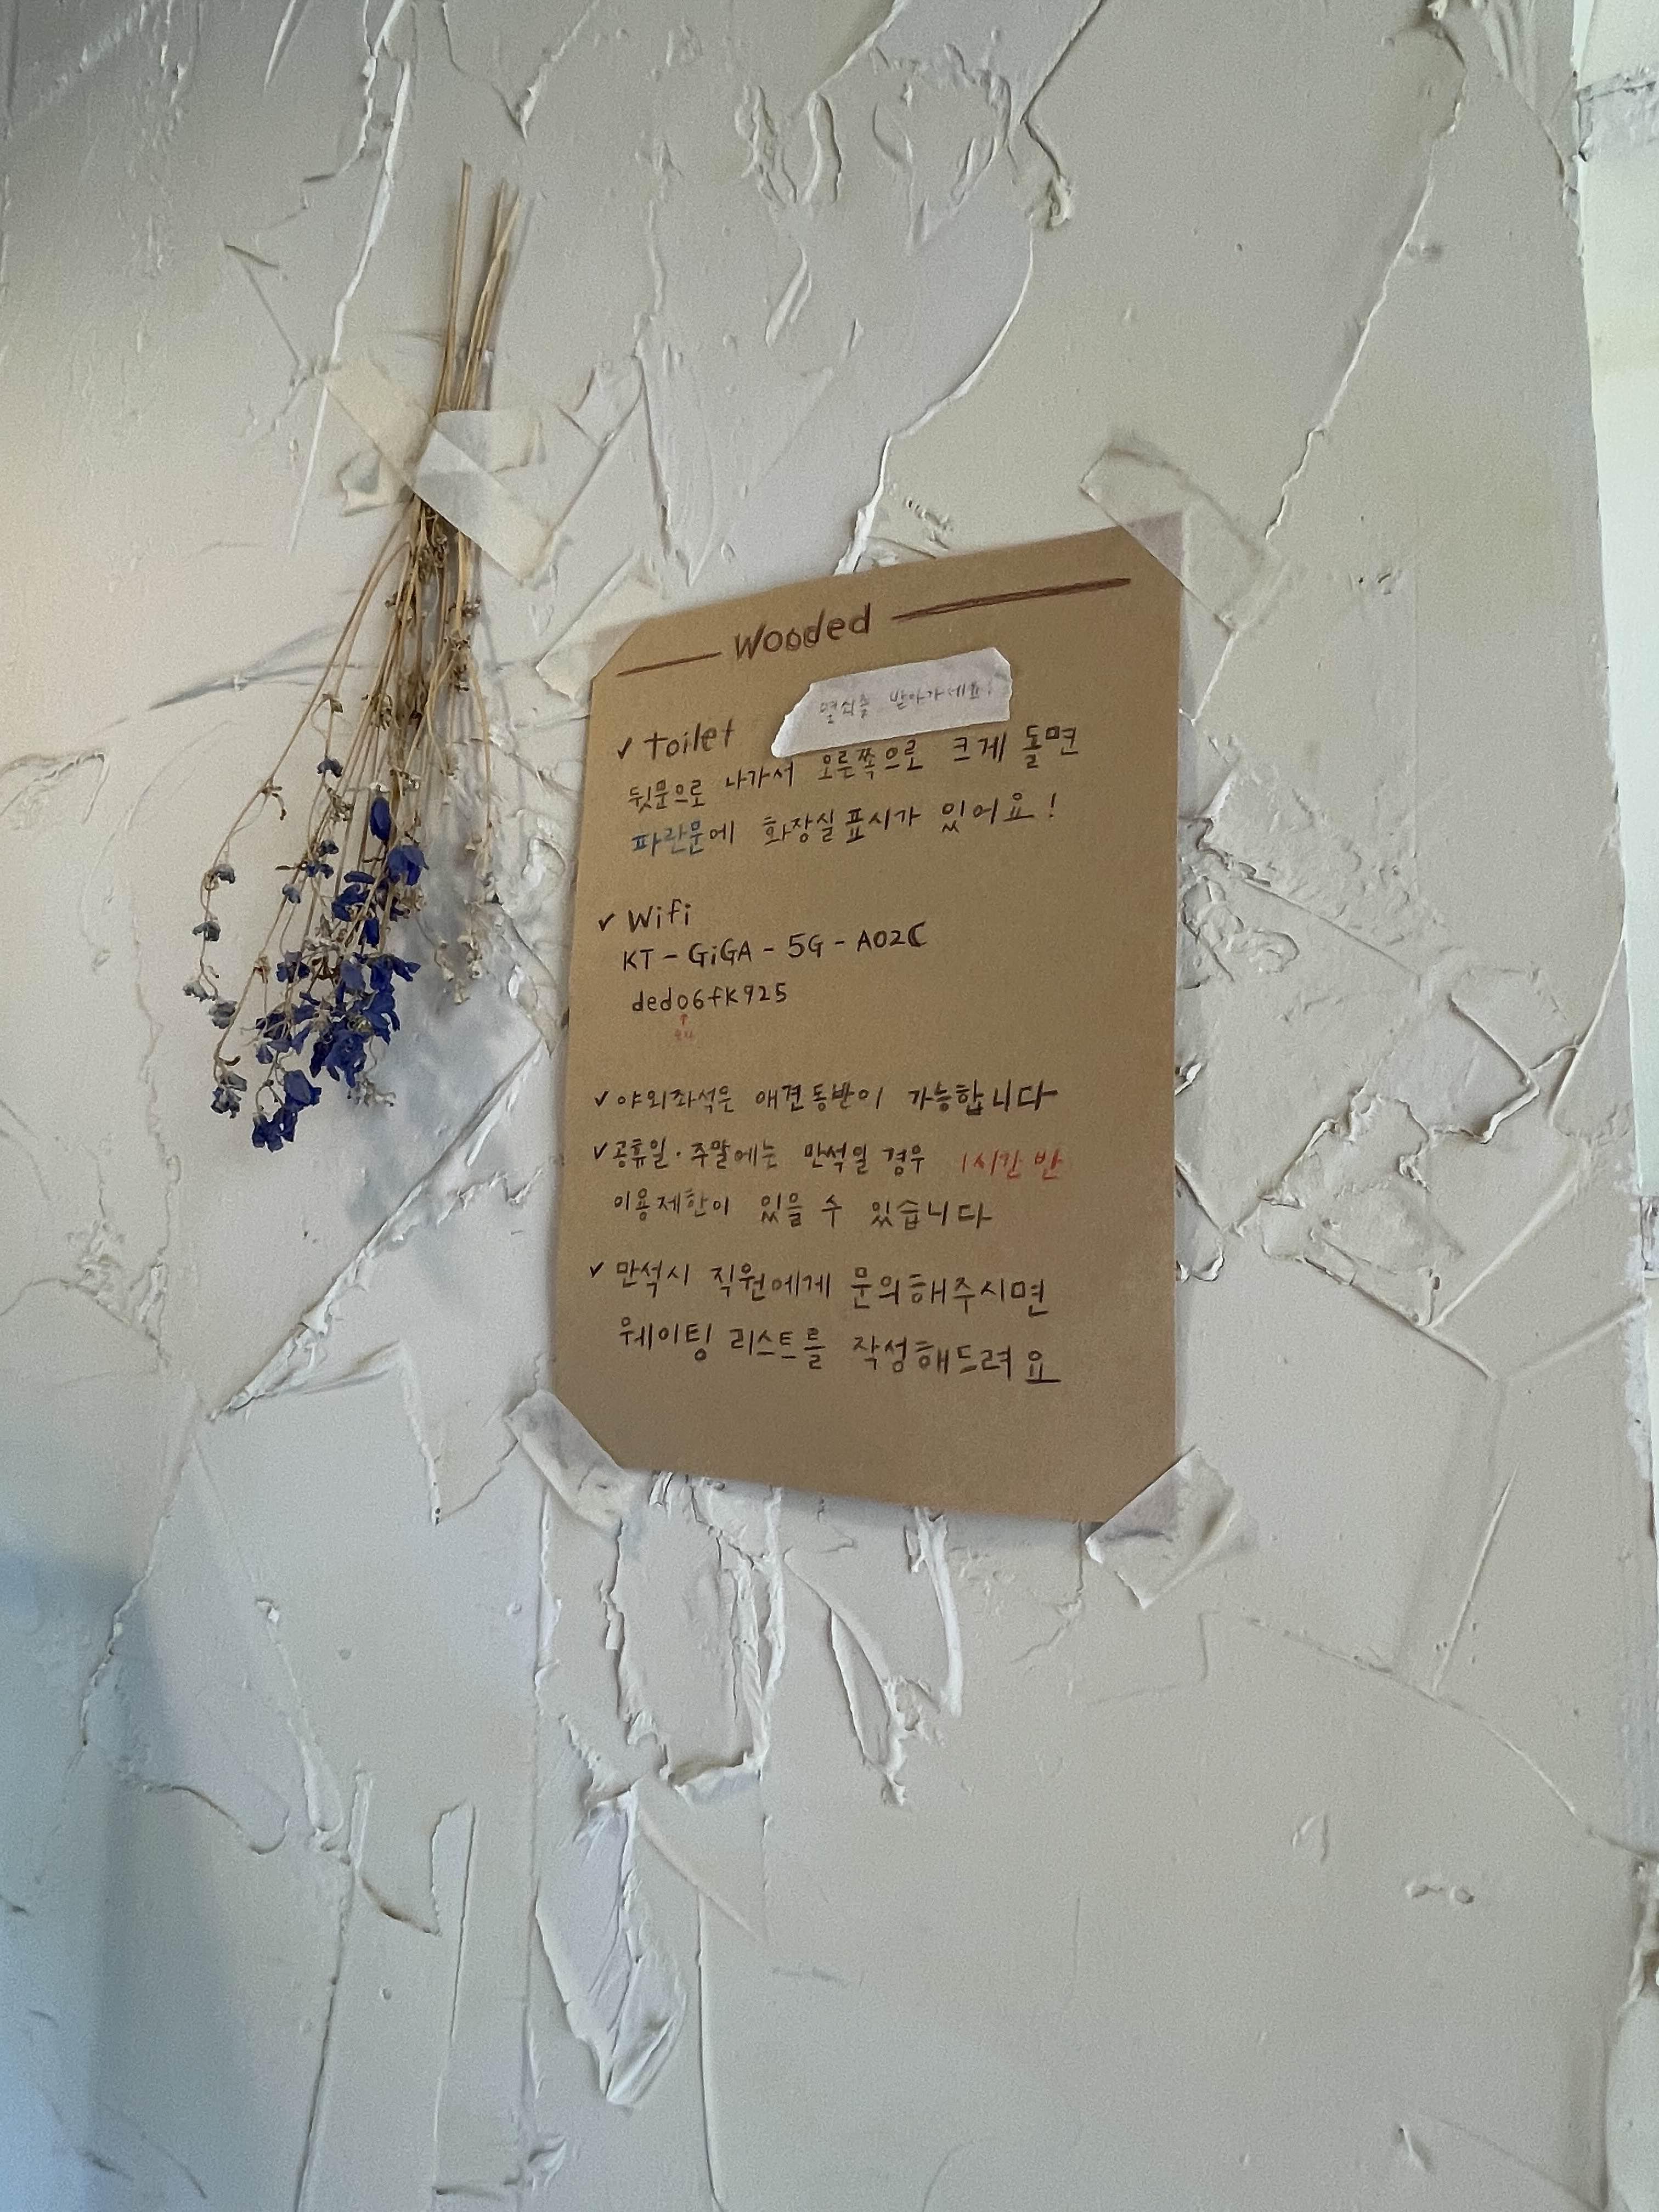 Wooded
열쇠를 받아가세요!
✓ toilet
뒷문으로 나가서 오른쪽으로 크게 돌면
파란문에 화장실표시가 있어요!
✓ Wifi
KT - GiGA - 5G - A02C
ded06fk925
✓ 야외좌석은 애견동반이 가능합니다
✓ 공휴일·주말에는 만석일 경우 1시간 반
이용제한이 있을 수 있습니다
✓ 만석시 직원에게 문의해주시면
웨이팅 리스트를 작성해드려요